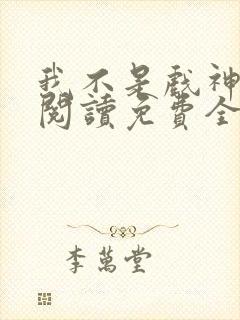 我不是戲神
閱讀免費全
李萬堂